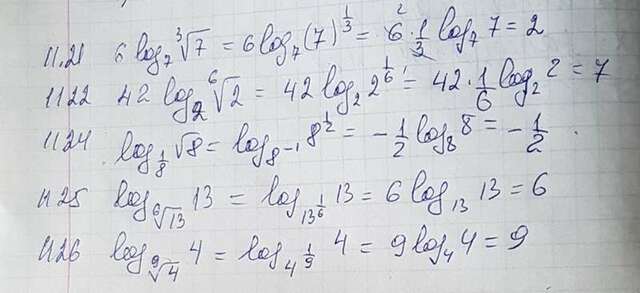 11.21 6 log₇ ∛7 = 6 log₇ (7)^(1/3) = 6² · 1/3 log₇ 7 = 2
1122 42 log₂ ⁶√2 = 42 log₂ 2^(1/6) = 42 · 1/6 log₂ 2 = 7
1124 log_(1/8) √8 = log_(8⁻¹) 8^(1/2) = -1/2 log₈ 8 = -1/2.
1125 log_(⁶√13) 13 = log_(13^(1/6)) 13 = 6 log₁₃ 13 = 6
1126 log_(⁹√4) 4 = log_(4^(1/9)) 4 = 9 log₄ 4 = 9